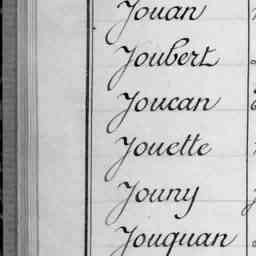 Jouan
Joubert
Joucan
Jouette
Jouny
Jouquan